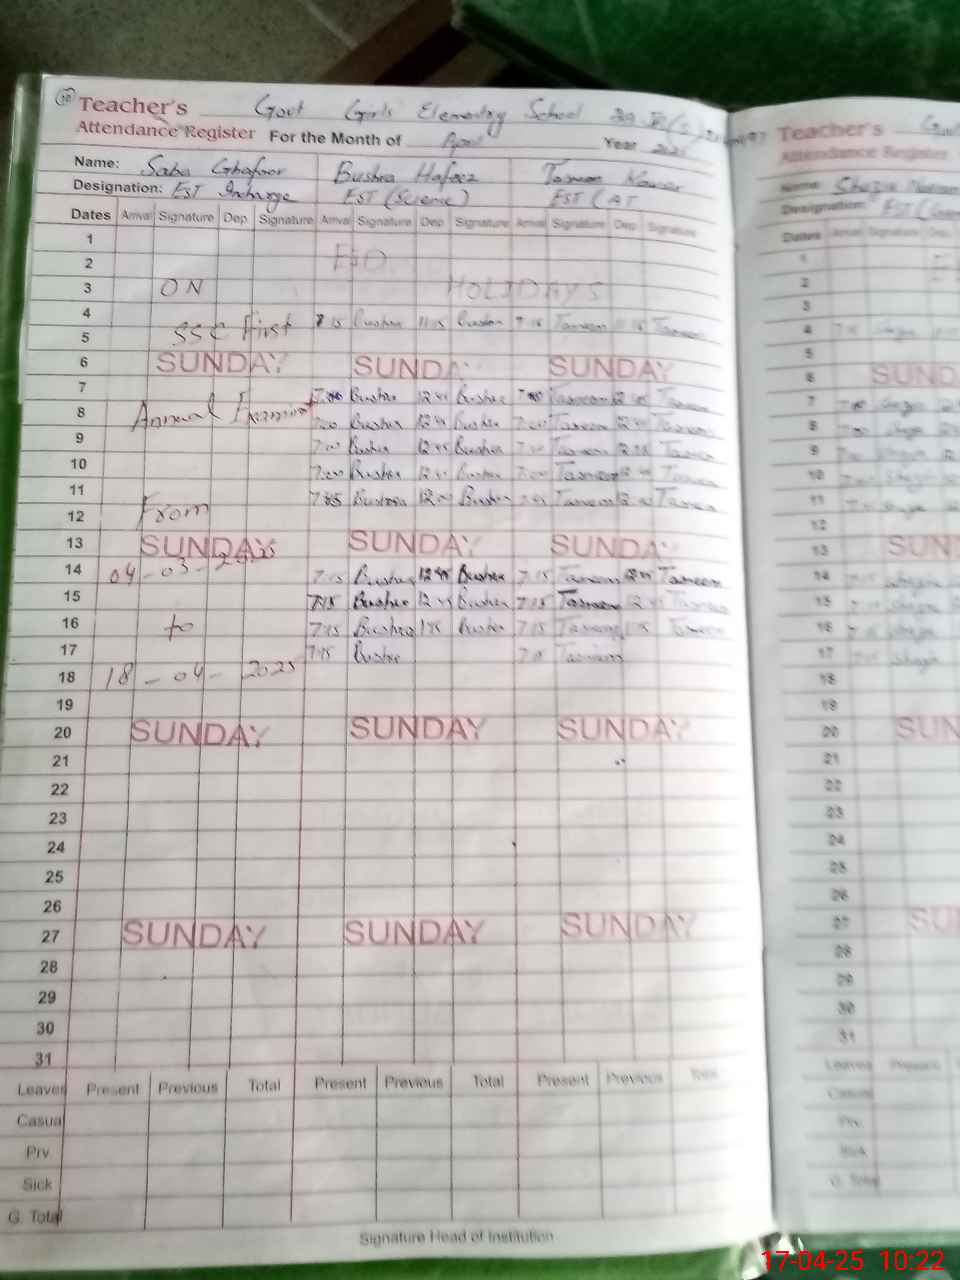 10
Teacher's Govt Girls Elementry School
Attendance Register For the Month of April Year
Name: Saba Ghafoor Bushra Hafeez Tasneem Kausar
Designation: EST Incharge EST (Science) EST (AT
Dates Arrival Signature Dep. Signature Arrival Signature Dep Signature Arrival Signature Dep Signature
1
2 EID
3 ON HOLIDAYS
4 7:15 Bushra 11:15 Bushra 7:15 Tasneem 11:15 Tasneem
5 SSC First
6 SUNDAY SUNDAY SUNDAY
7 7:00 Bushra 12:45 Bushra 7:00 Tasneem 12:45 Tasneem
8 Annual 7:00 Bushra 12:45 Bushra 7:00 Tasneem 12:45 Tasneem
9 7:00 Bushra 12:45 Bushra 7:00 Tasneem 12:45 Tasneem
10 7:00 Bushra 12:45 Bushra 7:00 Tasneem 12:45 Tasneem
11 Bushra 12:00 Bushra Tasneem 12:00 Tasneem
12 From
13 SUNDAY SUNDAY SUNDAY
14 04-03-2025 7:15 Bushra 12:45 Bushra 7:15 Tasneem 12:45 Tasneem
15 7:15 Bushra 12:45 Bushra 7:15 Tasneem 12:45 Tasneem
16 to 7:15 Bushra 1:15 Bushra 7:15 Tasneem 1:15 Tasneem
17 7:15 Bushra 7:15 Tasneem
18 18-04-2025
19
20 SUNDAY SUNDAY SUNDAY
21
22
23
24
25
26
27 SUNDAY SUNDAY SUNDAY
28
29
30
31
Leaves Present Previous Total Present Previous Total Present Previous Total
Casual
Prv.
Sick
G. Total
Signature Head of Institution
Teacher's
Attendance Register
Name: Shazia
Designation: EST
Dates Arrival Signature Dep.
1
2
3
4
5
6 SUND
7
8
9
10
11
12
13 SUN
14
15
16
17
18
19
20 SUN
21
22
23
24
25
26
27 SU
28
29
30
31
Leaves Present
Casual
Prv.
Sick
G. Total
17-04-25 10:22